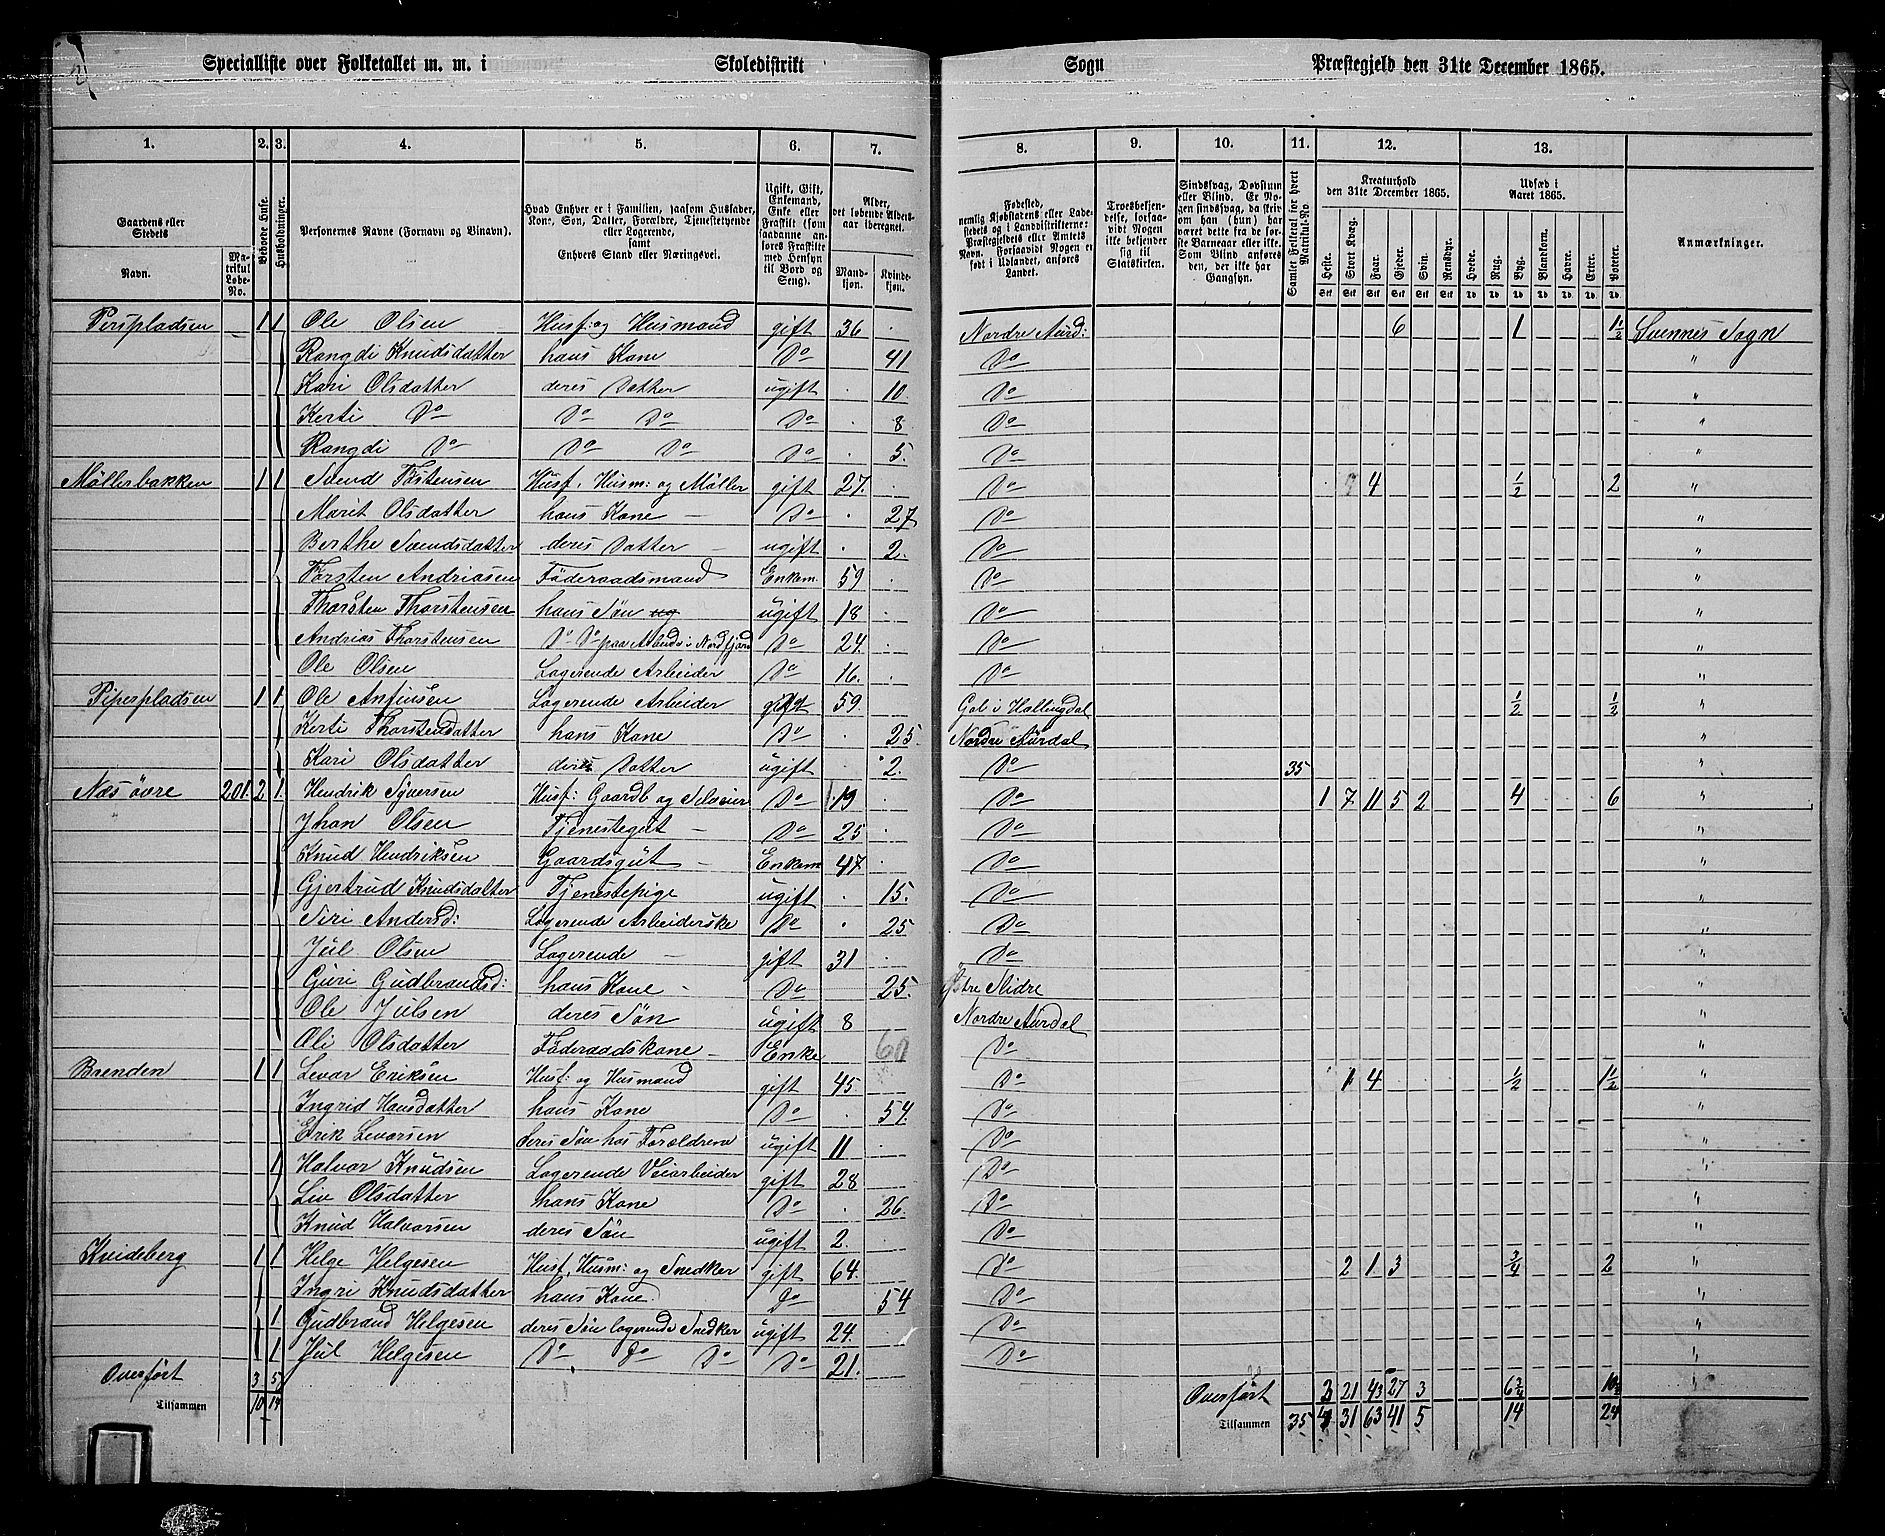 Specialliste over Folketallet m. m. i Skoledistrikt Sogn Præstegjeld den 31te December 1865.
1. 2. 3. 4. 5. 6. 7. 8. 9. 10. 11. 12. 13.
Gaardens eller Stedets
Navn.
Matrikul Løbe-No.
Beboede Huse.
Husholdninger.
Personernes Navne (Fornavn og Binavn).
Hvad Enhver er i Familien, saasom Husfader, Kone, Søn, Datter, Forældre, Tjenestetyende eller Logerende, samt Enhvers Stand eller Næringsvei.
Ugift, Gift, Enkemand, Enke eller Fraskilt (som saadanne anføres Fraskilte med Hensyn til Bord og Seng).
Alder, det løbende Aldersaar iberegnet.
Mandkjøn. Kvindekjøn.
Fødested, nemlig Kjøbstadens eller Ladestedets og i Landdistrikterne: Præstegjeldets eller Amtets Navn. Forsaavidt Nogen er født i Udlandet, anføres Landet.
Troesbekjendelse, forsaavidt Nogen ikke bekjender sig til Statskirken.
Sindssvag, Døvstum eller Blind. Er Nogen sindssvag, da skrives om han (hun) har været dette fra de første Barneaar eller ikke. Som Blind ansøres den, der ikke har Gangsyn.
Samlet Folketal for hvert Matrikul-No.
Kreaturhold den 31te December 1865.
Heste. Stort Kvæg. Faar. Gjeder. Svin. Rensdyr.
Udsæd i Aaret 1865.
Hvede. Rug. Byg. Blandkorn. Havre. Erter. Poteter.
Anmærkninger.
Perspladsen 1 1 Ole Olsen Husf: og Husmand gift 36 Nordre Aurd: 6 1 1½ Svennes Sogn
Rangdi Knudsdatter hans Kone Do 41 Do "
Kari Olsdatter deres Datter ugift 10 Do "
Kerti Do Do Do Do 8 Do "
Rangdi Do Do Do Do 5 Do "
Møllerbakken 1 1 Svend Tostensen Husf. Husm: og Møller gift 27 Do 4 ½ 2 "
Marit Olsdatter hans Kone Do 27 Do "
Berthe Svendsdatter deres Datter ugift 2 Do "
Torsten Andriasen Føderaadsmand Enkem. 59 Do "
Thorsten Thorstensen hans Søn og ugift 18 Do "
Andrias Thorstensen Do Do paa Arbeide i Nordfjord Do 24 Do "
Ole Olsen Logerende Arbeider Do 16 Do "
Piperpladsen 1 1 Ole Anfinsen Logerende Arbeider gift 59 Gol i Hallingdal ½ ½ "
Kerti Thorstensdatter hans Kone Do 25 Nordre Aurdal "
Kari Olsdatter deres Datter ugift 2 Do 35 "
Næs øvre 201 2 1 Hendrik Syversen Husf: Gaardb og Selveier Do 19 Do 1 7 11 5 2 4 6 "
Jhan Olsen Tjenestegut Do 25 Do "
Knud Hendriksen Gaardsgut Enkem 47 Do "
Gjertrud Knudsdatter Tjenestepige ugift 15 Do "
Siri Andersd: Logerende Arbeiderske Do 25 Do "
Jul Olsen Logerende gift 31 Do "
Guri Gudbrandsd: hans Kone Do 25 Østre Slidre "
Ole Julsen deres Søn ugift 8 Nordre Aurdal "
Oli Olsdatter Føderaadskone Enke 60 Do "
Brenden 1 1 Levor Eriksen Husf: og Husmand gift 45 Do 1 4 ½ 1½ "
Ingrid Hansdatter hans Kone Do 54 Do "
Erik Levorsen deres Søn hos Forældrene ugift 11 Do "
1 Halvor Knudsen Logerende Veiarbeider gift 28 Do "
Liv Olsdatter hans Kone Do 26 Do "
Knud Halvorsen deres Søn ugift 2 Do "
Kvideberg 1 1 Helge Helgesen Husf. Husm: og Snedker gift 64 Do 2 1 3 ¾ 2 "
Ingri Knudsdatter hans Kone Do 54 Do "
1 Gudbrand Helgesen deres Søn logerende Snedker ugift 24 Do "
1 Jul Helgesen Do Do Do Do 21 Do "
Overført 3 5 Overført 21 43 27 3 6¾ "
Tilsammen 10 14 Tilsammen 35 31 63 41 5 14 24